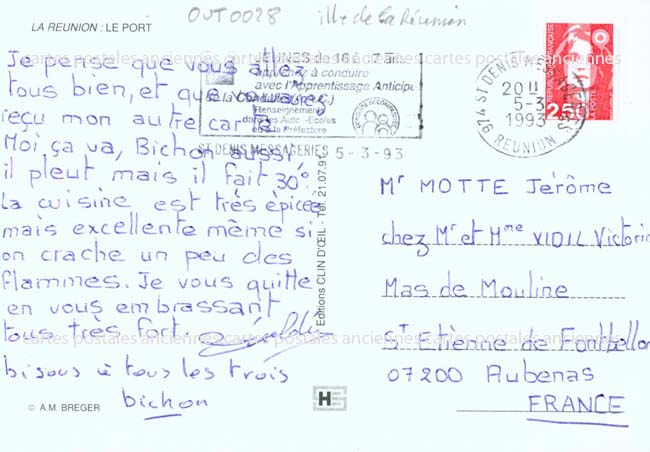 OUT0028 ille de la Réunion
LA REUNION : LE PORT
Je pense que vous allez
tous bien, et que vous avez
reçu mon autre carte.
Moi ça va, Bichon aussi
il pleut mais il fait 30°.
La cuisine est très épicée
mais excellente même si
on crache un peu des
flammes. Je vous quitte
en vous embrassant
tous très fort.
bisous à tous les trois
bichon
© A.M. BREGER
JEUNES de 16 à 17 ans
apprenez à conduire
avec l'Apprentissage Anticipé
de la Conduite (A.A.C.)
Renseignements
dans les Auto-Ecoles
ou à la Préfecture
ST DENIS MESSAGERIES 5-3-93
974 ST DENIS MESSAGERIES
20 H
5-3
1993
REUNION
REPUBLIQUE FRANÇAISE
2,50
LA POSTE
Editions CLIN D'ŒIL - Tél. 21.07.91
Mr MOTTE Jérôme
chez Mr et Mme VIDIL Victorin
Mas de Mouline
St Etienne de Fontbellon
07200 Aubenas
FRANCE
HS
cartes postales anciennes cartes postales anciennes cartes postales anciennes
cartes postales anciennes cartes postales anciennes cartes postales anciennes